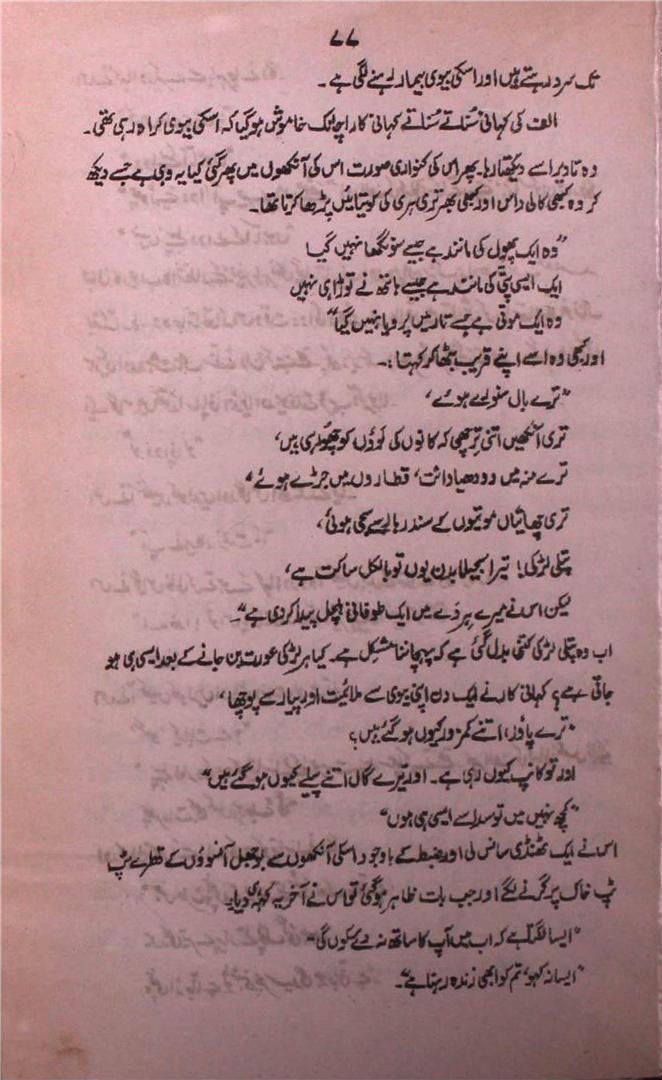 ۷۷
تک سرد رہتے ہیں اور اسکی بیوی بیمار رہنے لگی ہے۔
الف کی کہانی سُناتے سُناتے کہانی کار اچانک خاموش ہو گیا کہ اسکی بیوی کراہ رہی تھی۔
وہ تا دیر اسے دیکھتا رہا۔ پھر اس کی کنواری صورت اس کی آنکھوں میں پھر گئی کیا یہ وہی ہے جسے دیکھ
کر وہ کبھی کالی داس اور کبھی بھرتری ہری کی کویتائیں پڑھا کرتا تھا۔
”وہ ایک پھول کی مانند ہے جسے سونگھا نہیں گیا
ایک ایسی پتی کی مانند ہے جسے ہاتھ نے توڑا ہی نہیں
وہ ایک موتی ہے جسے تار میں پرویا نہیں گیا“
اور کبھی وہ اسے اپنے قریب بٹھا کر کہتا :۔
”ترے بال سنورے ہوئے،
تری آنکھیں اتنی ترچھی کہ کانوں کی لوؤں کو چھو رہی ہیں،
ترے منہ میں دودھیا دانت، قطاروں میں جڑے ہوئے،
تری چھاتیاں موتیوں کے سندر ہار سے سجی ہوئی،
پتلی لڑکی! تیرا سجیلا بدن یوں تو بالکل ساکت ہے،
لیکن اس نے میرے ہردے میں ایک طوفانی ہلچل پیدا کر دی ہے“۔
اب وہ پتلی لڑکی کتنی بدل گئی ہے کہ پہچاننا مشکل ہے۔ کیا ہر لڑکی عورت بن جانے کے بعد ایسی ہی ہو
جاتی ہے؟ کہانی کار نے ایک دن اپنی بیوی سے ملائمیت اور پیار سے پوچھا،
”ترے پاؤں، اتنے کمزور کیوں ہو گئے ہیں؟
اور تو کانپ کیوں رہی ہے۔ اور تیرے گال اتنے پیلے کیوں ہو گئے ہیں“
”کچھ نہیں میں تو سدا سے ایسی ہی ہوں“
اس نے ایک ٹھنڈی سانس لی اور ضبط کے باوجود اسکی آنکھوں سے بوجھل آنسوؤں کے قطرے ٹپ
ٹپ خاک پر گرنے لگے اور جب بات ظاہر ہو گئی تو اس نے آخر یہ کہہ ہی دیا۔
”ایسا لگتا ہے کہ اب میں آپ کا ساتھ نہ دے سکوں گی“
”ایسا نہ کہو، تم کو ابھی زندہ رہنا ہے“۔